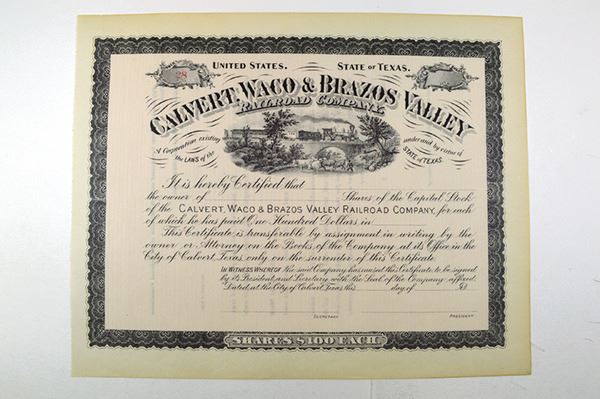 UNITED STATES. STATE OF TEXAS.
28
CALVERT, WACO & BRAZOS VALLEY
RAILROAD COMPANY.
A Corporation existing under and by virtue of
the LAWS of the STATE OF TEXAS.
It is hereby Certified that
the owner of Shares of the Capital Stock
of the CALVERT, WACO & BRAZOS VALLEY RAILROAD COMPANY, for each
of which he has paid One Hundred Dollars in
This Certificate is transferable by assignment in writing by the
owner or Attorney on the Books of the Company at its Office in the
City of Calvert, Texas only on the surrender of this Certificate.
IN WITNESS WHEREOF the said Company has caused this Certificate to be signed
by its President and Secretary with the Seal of the Company affixed.
Dated at the City of Calvert, Texas this day of 18
SECRETARY PRESIDENT
SHARES $100 EACH